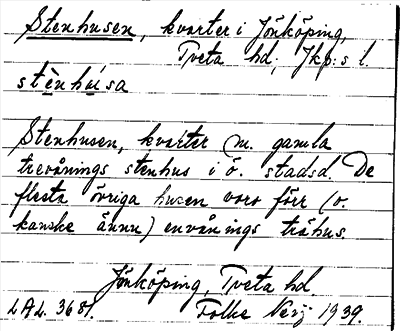 Stenhusen, kvarter i Jönköping,
Tveta hd; Jkp:s l.
stènhúsa
Stenhusen, kvarter m. gamla
trevånings stenhus i ö. stadsd. De
flesta övriga husen voro förr (o.
kanske ännu) envånings trähus.
Jönköping, Tveta hd.
LAL. 3681. Folke 1939.